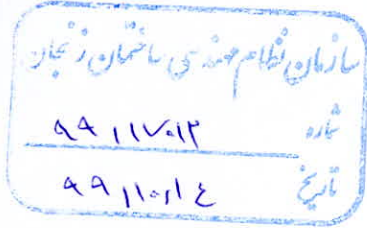 سازمان نظام مهندسی ساختمان زنجان
شماره ۹۹/۱۷۰۱۳
تاریخ ۹۹/۱۰/۱۴